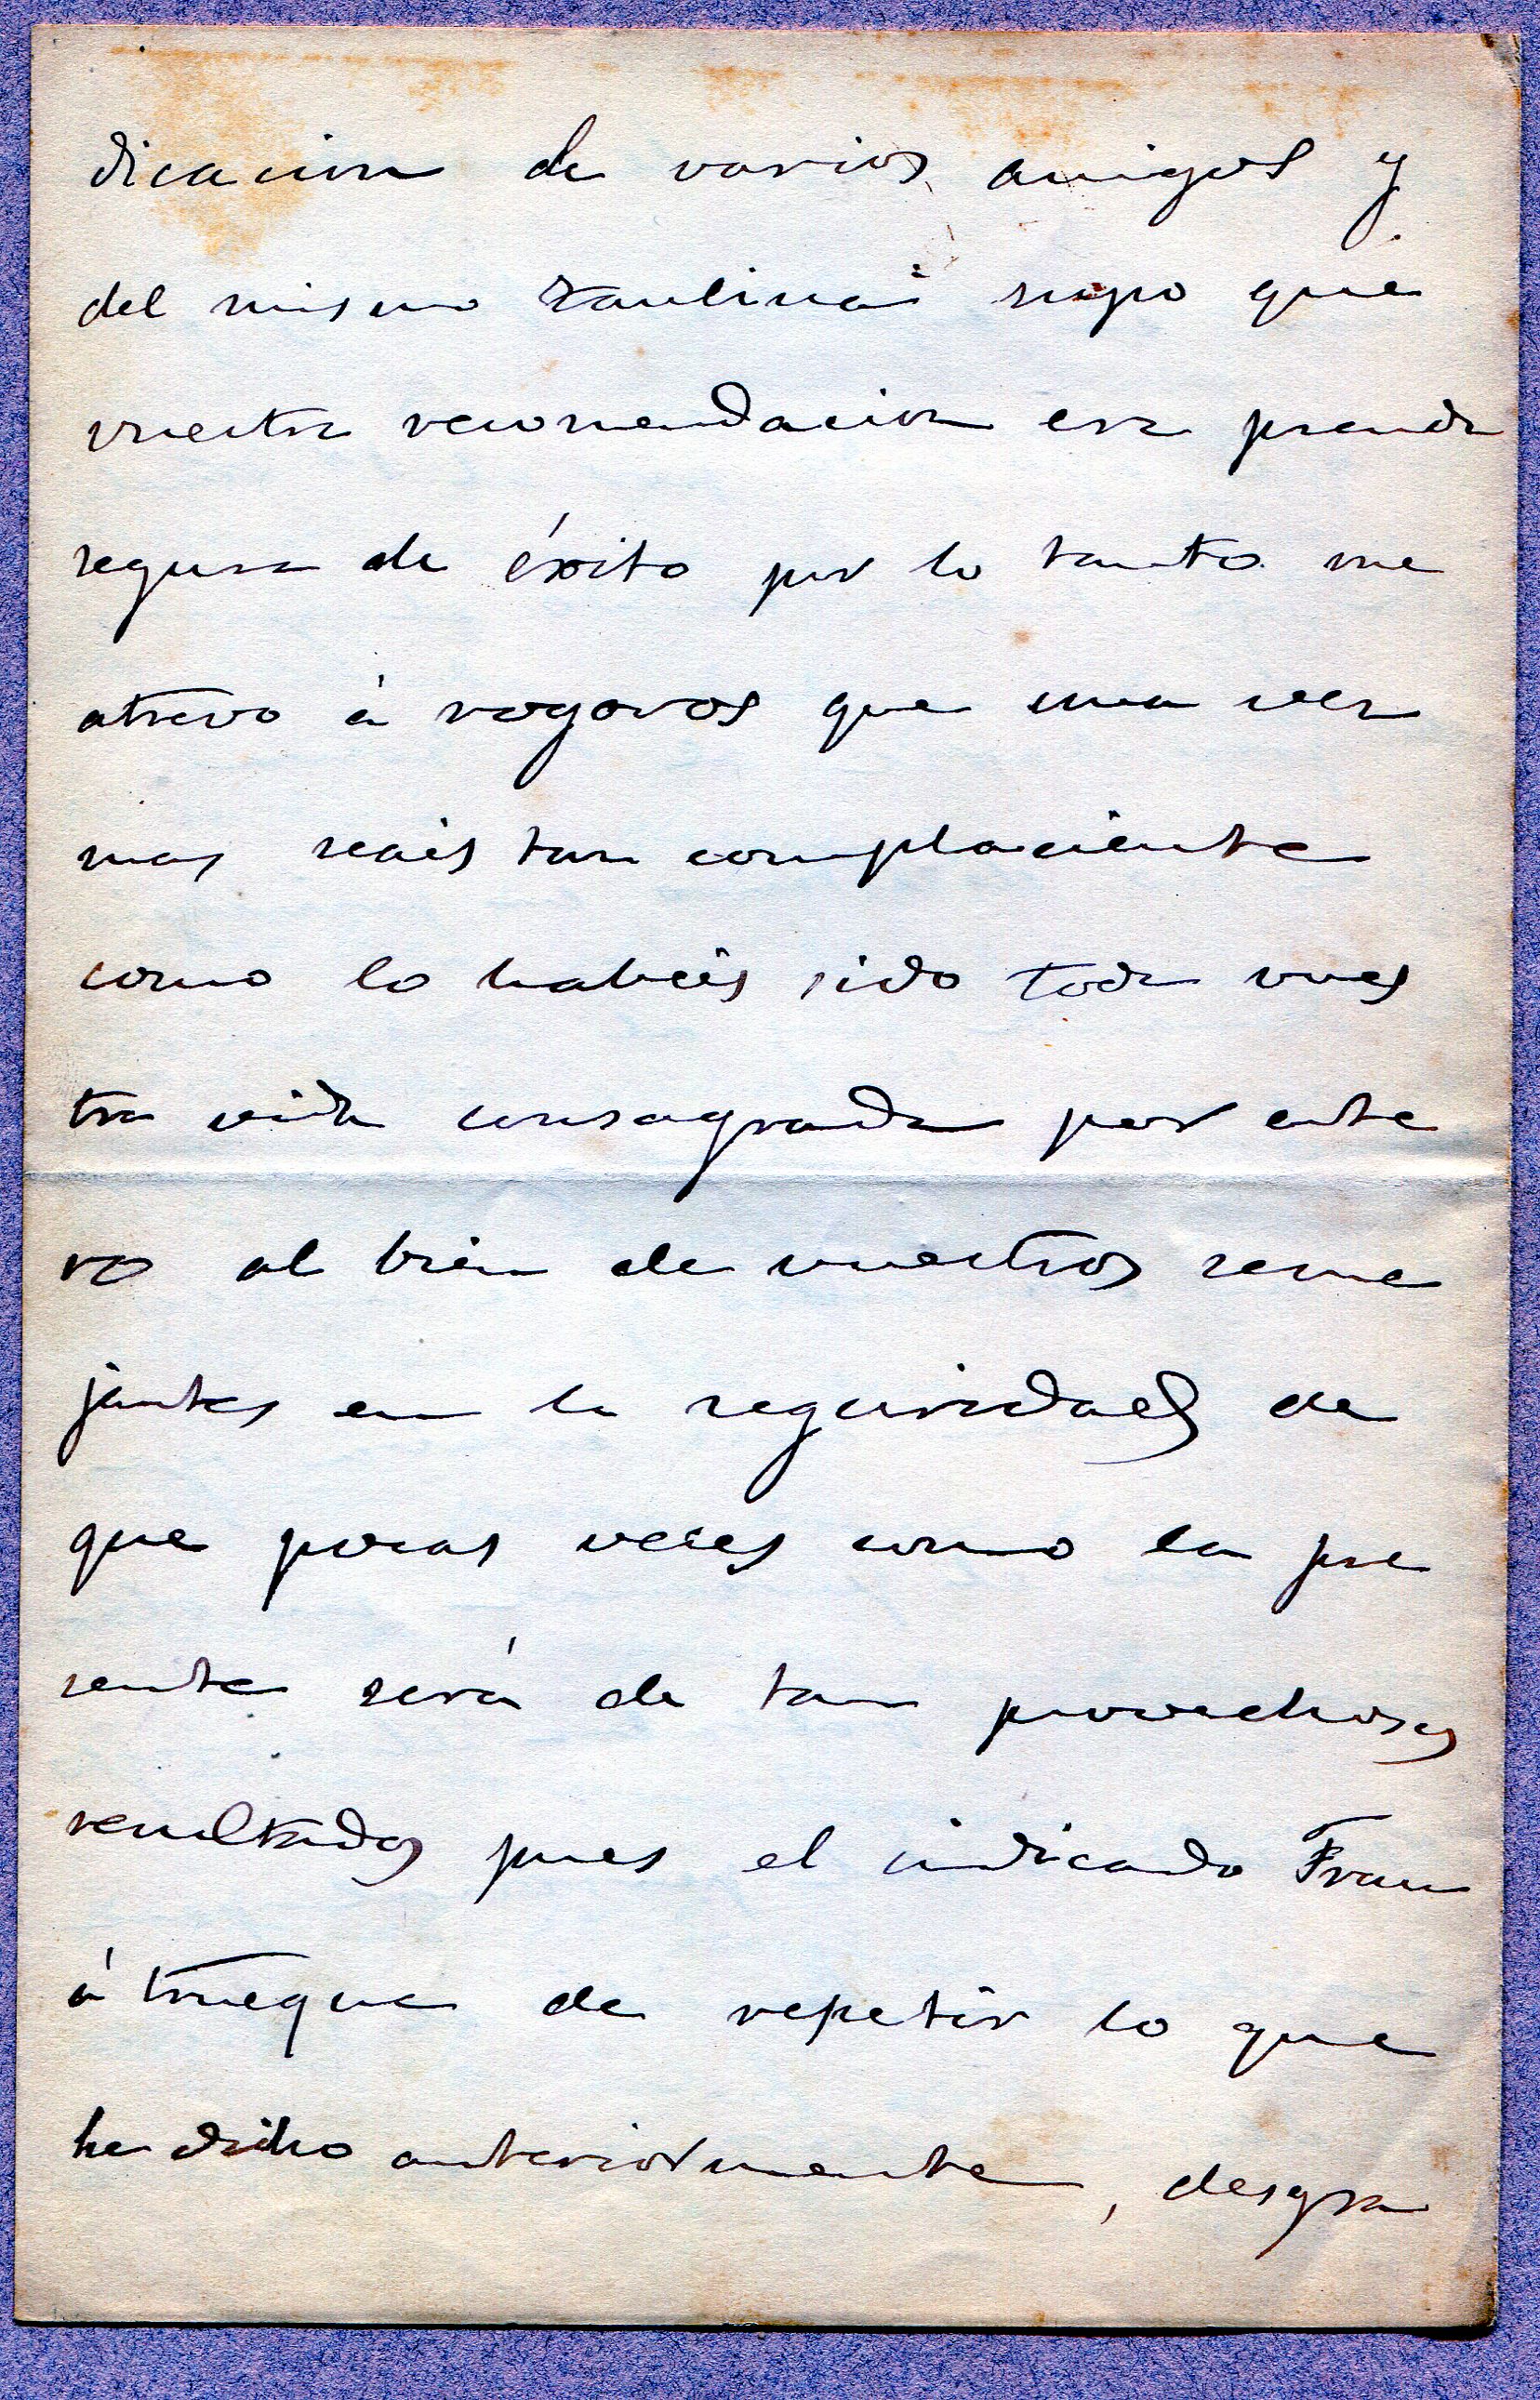 dicacion de varios amigos y
del mismo supo que
vuestra recomendacion era prenda
segura de éxito por lo tanto me
atrevo á rogaros que una vez
mas seais tan complaciente
como lo habeis sido toda vues
tra vida consagrada por ente
ro al bien de vuestros seme
jantes en la seguridad de
que pocas veces como la pre
sente será de tan provechosos
resultados pues el indicado Fran
á trueque de repetir lo que
he dicho anteriormente, desgra